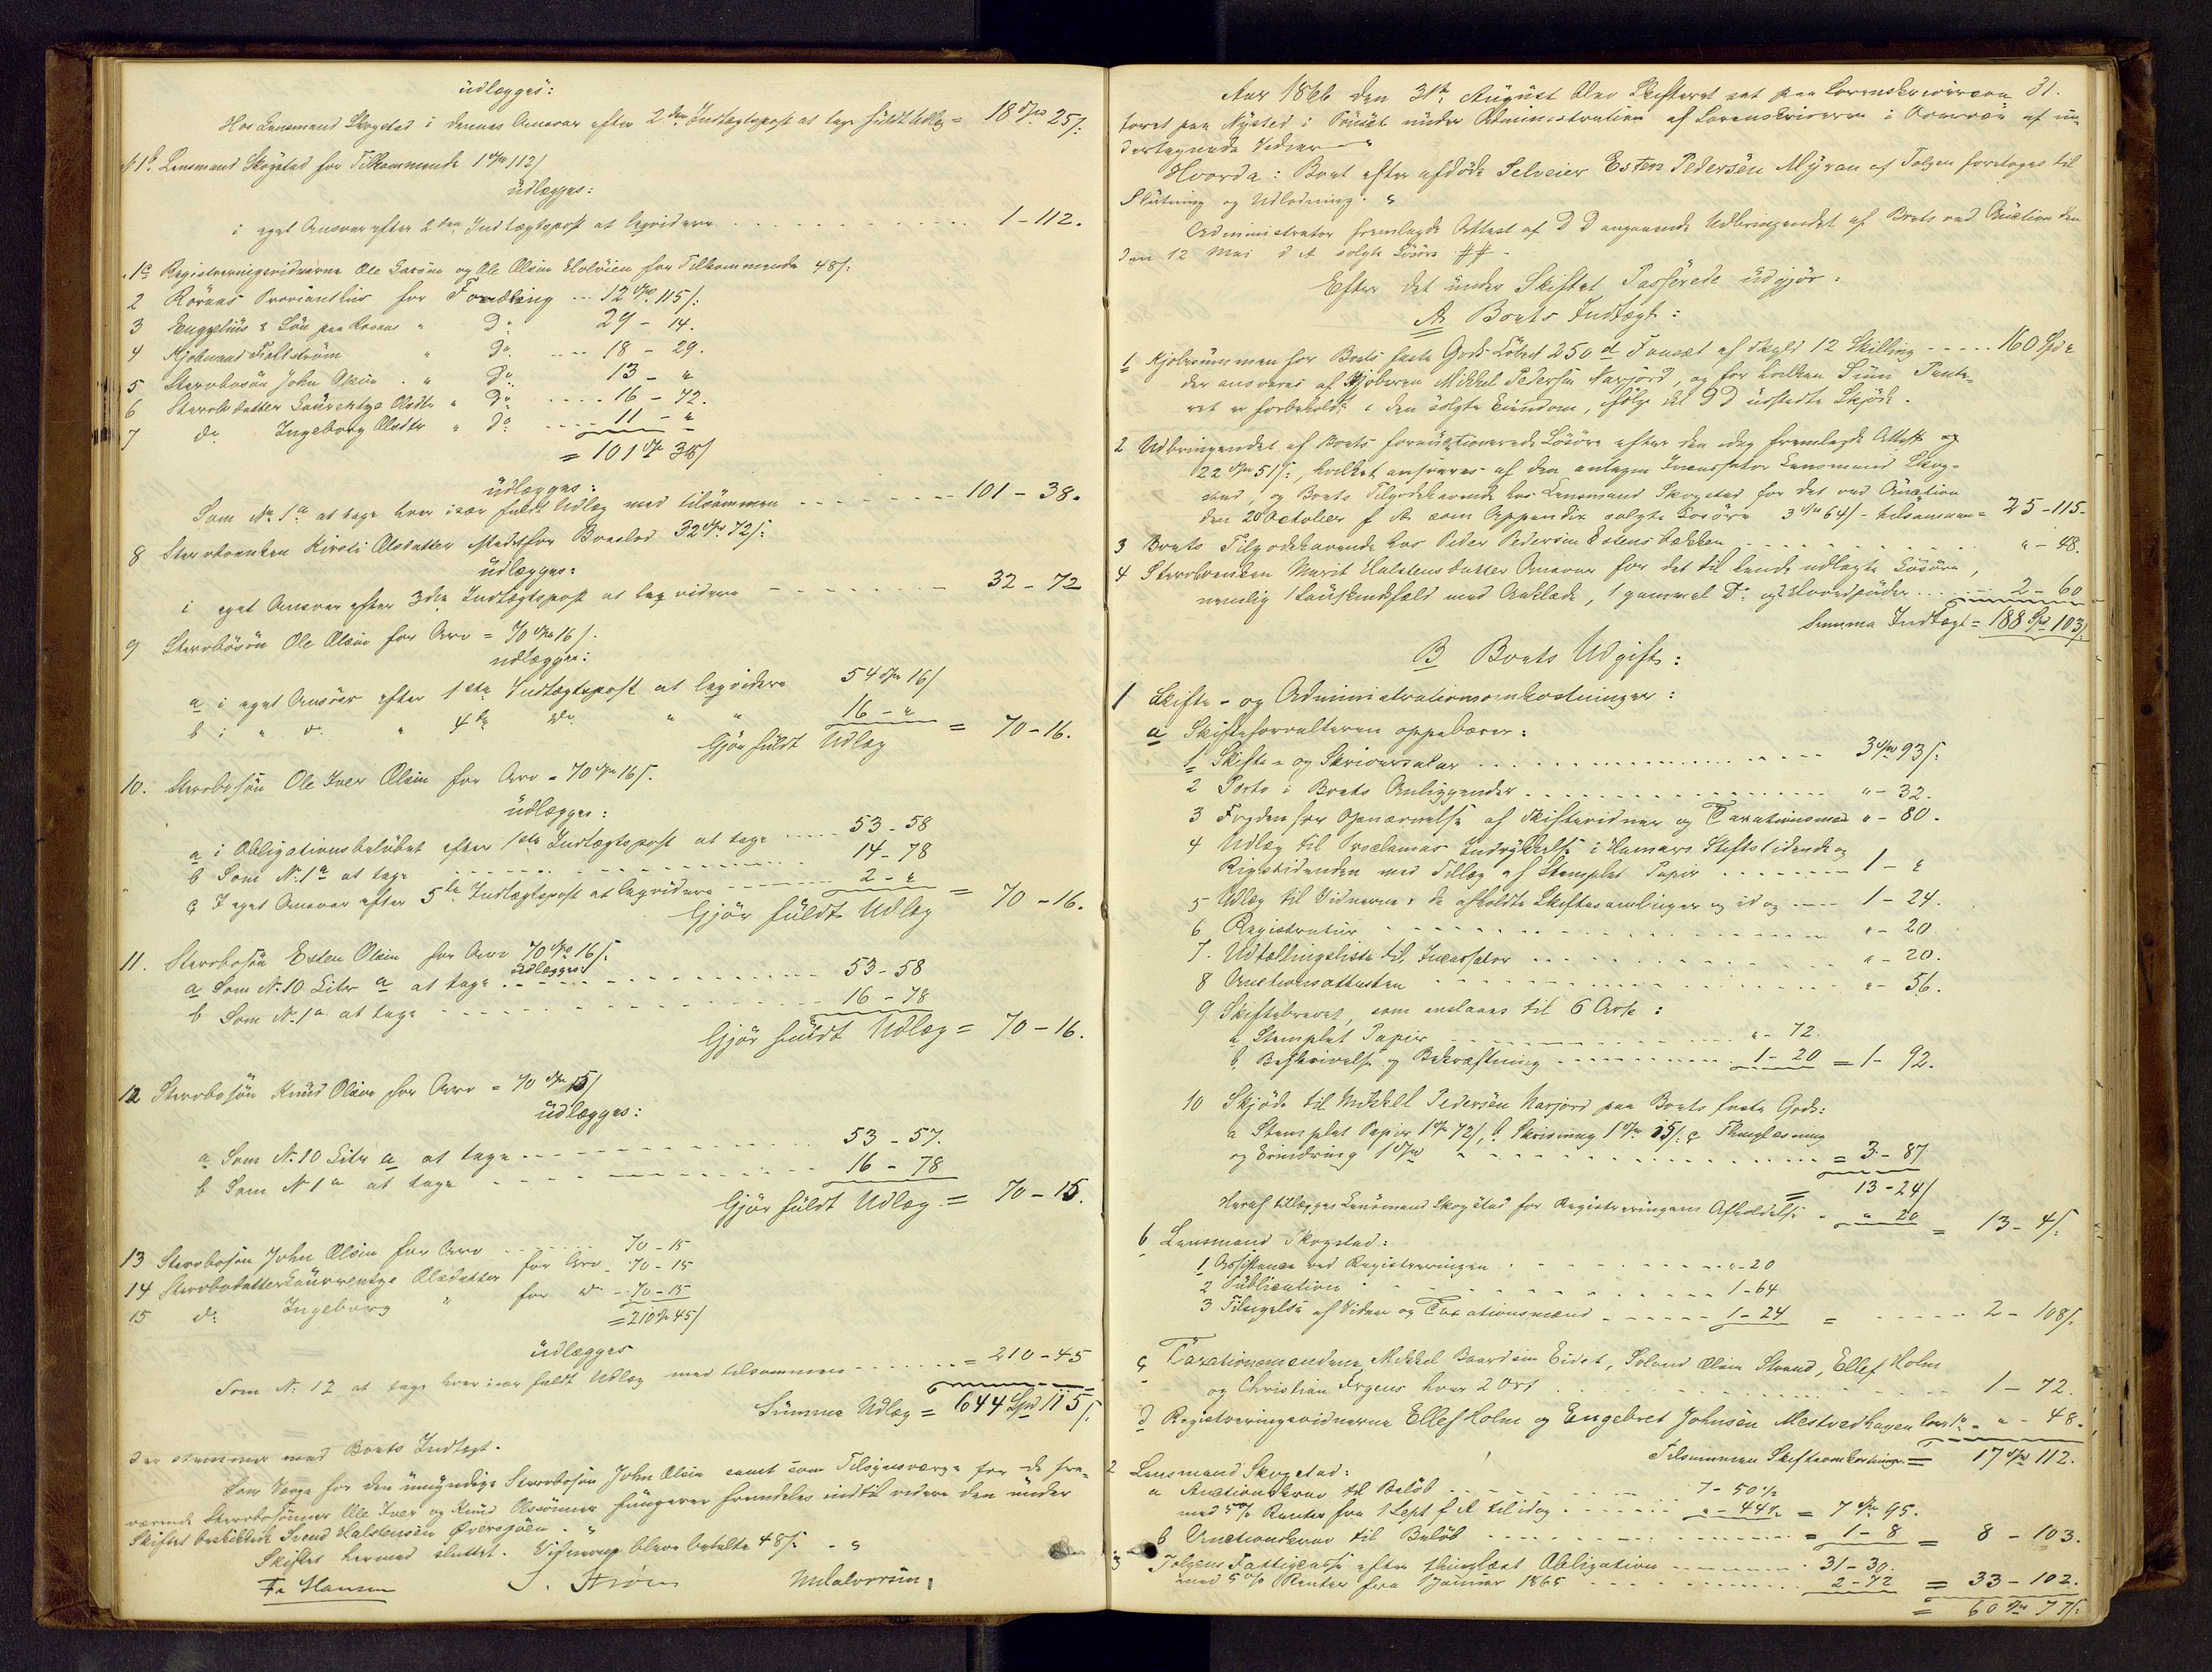 udlægges:
Hos Lensmand Skogstad i dennes Ansvar efter 2den Indtægtspost at tage fuldt Udlæg = 18 Spd 25 s.
1 b. Lensmand Skogstad for Tilkommende 1 Spd 112 s
udlægges:
i eget Ansvar efter 2den Indtægtspost at liqvidere 1 - 112.
1 c Registreringsvidnerne Ole Larsen og Ole Olsen Holöien for Tilkommende 48 s:
2 Röraas Provianthus for Fordring 12 Spd 115 s.
3 Engzelius & Sön paa Röraas " do 29 - 14.
4 Kjöbmand Feltström " do 18 - 29.
5 Stervbosön John Olsen " do 13 - "
6 Stervbdatter Laurentze Olsdtr " do 16 - 72.
7 do Ingeborg Olsdtr " do 11 - "
= 101 Spd 38 s
udlægges:
Som No 1 a at tage hver især fuldt Udlæg med tilsammen 101 - 38.
8 Stervboenken Kirsti Olsdatter Mestes for Broslod 32 Spd 72 s:
udlægges:
i eget Ansvar efter 3die Indtægtspost at liqvidere 32 - 72
9 Stervbosön Ole Olsen for Arv = 70 Spd 16 s.
udlægges:
a i eget Ansvar efter 1ste Indtægtspost at liqvidere 54 Spd 16 s
b i " do " 4de do " " 16 - "
Gjör fuldt Udlæg = 70 - 16.
10. Stervbosön Ole Iver Olsen for Arv = 70 Spd 16 s.
udlægges:
a i Obligationsbelöbet efter 1ste Indtægtspost at tage 53 - 58
b Som No 1 a at tage 14 - 78
c I eget Ansvar efter 5te Indtægtspost at liqvidere 2 - "
Gjör fuldt Udlæg = 70 - 16.
11. Stervbosön Esten Olsen for Arv 70 Spd 16 s.
udlægges:
a Som No 10 Litr a at tage 53 - 58
b Som No 1 a at tage 16 - 78
Gjör fuldt Udlæg = 70 - 16.
12 Stervbosön Knud Olsen for Arv = 70 Spd 15 s
udlægges:
a Som No 10 Litr a at tage 53 - 57.
b Som No 1 a at tage 16 - 78
Gjör fuldt Udlæg = 70 - 15.
13 Stervbosön John Olsen for Arv 70 - 15
14 Stervbodatter Laurentze Olsdatter for Arv 70 - 15
15 do Ingeborg " for do 70 - 15
= 210 Spd 45 s
udlægges
Som No 12 at tage hver især fuldt Udlæg med tilsammen = 210 - 45
Summa Udlæg = 644 Spd 115 s.
der stemmer med Boets Indtægt.
Som Værge for den umyndige Stervbosön John Olsen samt som Tilsynsværge for de fra-
værende Stervbosönner Ole Iver og Knud Olssönner fungerer fremdeles indtil videre den under
Skiftet beskikkede Svend Halstensen Översjöen. "
Skiftet hermed sluttet. Vidnerne bleve betalte 48 s. - "
Fr Hansen S. Ström
Aar 1866 den 31te August blev Skifteret sat paa Sorenskrivercon- 31.
toret paa Nysted i Tönset under Administration af Sorenskriveren i Overvær af un-
dertegnede Vidner "
Hvorda: Boet efter afdöde Selveier Esten Pedersen Myran af Tolgen foretoges til
Slutning og Udlodning. "
Administrator fremlagde Attest af D D angaaende Udbringendet af Boets ved Auction den
den 12 Mai d A solgte Lösöre ##.
Efter det under Skiftet Passerede udgjör:
A Boets Indtægt:
1 Kjöbesummen for Boets faste Gods Löbet 250 d Tönset af Skyld 12 Skilling 160 Spd "
der ansvares af Kjöberen Mikkel Pedersen Narjord, og for hvilken Sum Pante-
ret er forbeholdt i den solgte Eiendom, ifölge det D D udstedte Skjöde.
2 Udbringendet af Boets forauctionerede Lösöre efter den idag fremlagde Attest =
22 Spd 51 s:, hvilket ansvares af den antagne Incassator Lensmand Skog-
stad, og Boets Tilgodehavende hos Lensmand Skogstad for det ved Auction
den 20 October f A som Appendix solgte Lösöre 3 Spd 64 s - tilsammen = 25 - 115 -
3 Boets Tilgodehavende hos Peder Pedersen Estensbækken " - 48.
4 Stervboenken Marit Halstensdatter Ansvar for det til hende udlagte Lösöre,
nemlig 1 Lauskindsfeld med Aaklæde, 1 gammel do og Hovedpuder 2 - 60
Summa Indtægt = 188 Spd 103 s.
B Boets Udgift:
1 Skifte- og Administrationsomkostninger:
a Skifteforvalteren oppebærer:
1 Skifte- og Skriversalær 3 Spd 93 s.
2 Porto i Boets Anliggender " - 32.
3 Fogden for Opnævnelse af Skiftevidner og Taxationsmæn " - 80.
4 Udlæg til Proclamas Indrykkelse i Hamars Stiftstidende og
Rigstidenden med Tillæg af Stemplet Papir 1 - "
5 Udlæg til Vidnerne i de afholdte Skiftesamlinger og idag 1 - 24.
6 Registratur " - 20
7. Udtællingsliste til Incassator " - 20.
8 Auctionsattesten " - 56.
9 Skiftebrevet, som anslaaes til 6 Ark:
a Stemplet Papir " - 72.
b. Beskrivelse og Bekræftning 1 - 20 = 1 - 92.
10 Skjöde til Mikkel Pedersen Narjord paa Boets faste Gods:
a Stemplet Papir 1 Spd 72 s, b. Skrivning 1 Spd 15 s. c Thinglæsning
og Erindring 1 Spd = 3 - 87
= 13 - 24 s
Heraf tillægges Lensmand Skogstad for Registreringens Afholdelse " 20 = 13 - 4 s.
b Lensmand Skogstad:
1 Assistance ved Registreringen " - 20
2 Publication 1 - 64
3 Tilsigelse af Vidner og Taxationsmænd 1 - 24 = 2 - 108 s.
c Taxationsmændene Mikkel Baardsen Eidet, Simon Olsen Strand, Ellef Holm
og Christian Irgens hver 2 Ort 1 - 72.
d Registreringsvidnerne Ellef Holm og Engebret Johnsen Mestvedhagen " - 48.
Tilsammen Skifteomkostninger = 17 Spd 112.
2 Lensmand Skogstad:
a Auctionskrav til Beløb 7 - 50 ½
med 5% Renter fra 1 Sept f A til idag " - 44 ½ = 7 Spd 95.
b Auctionskrav til Beløb = 1 - 8 = 8 - 103.
3 Tolgens Fattigcasse efter thinglæst Obligation 31 - 30.
med 5% Renter fra Januar 1865 2 - 72 = 33 - 102.
= 60 Spd 77 s.